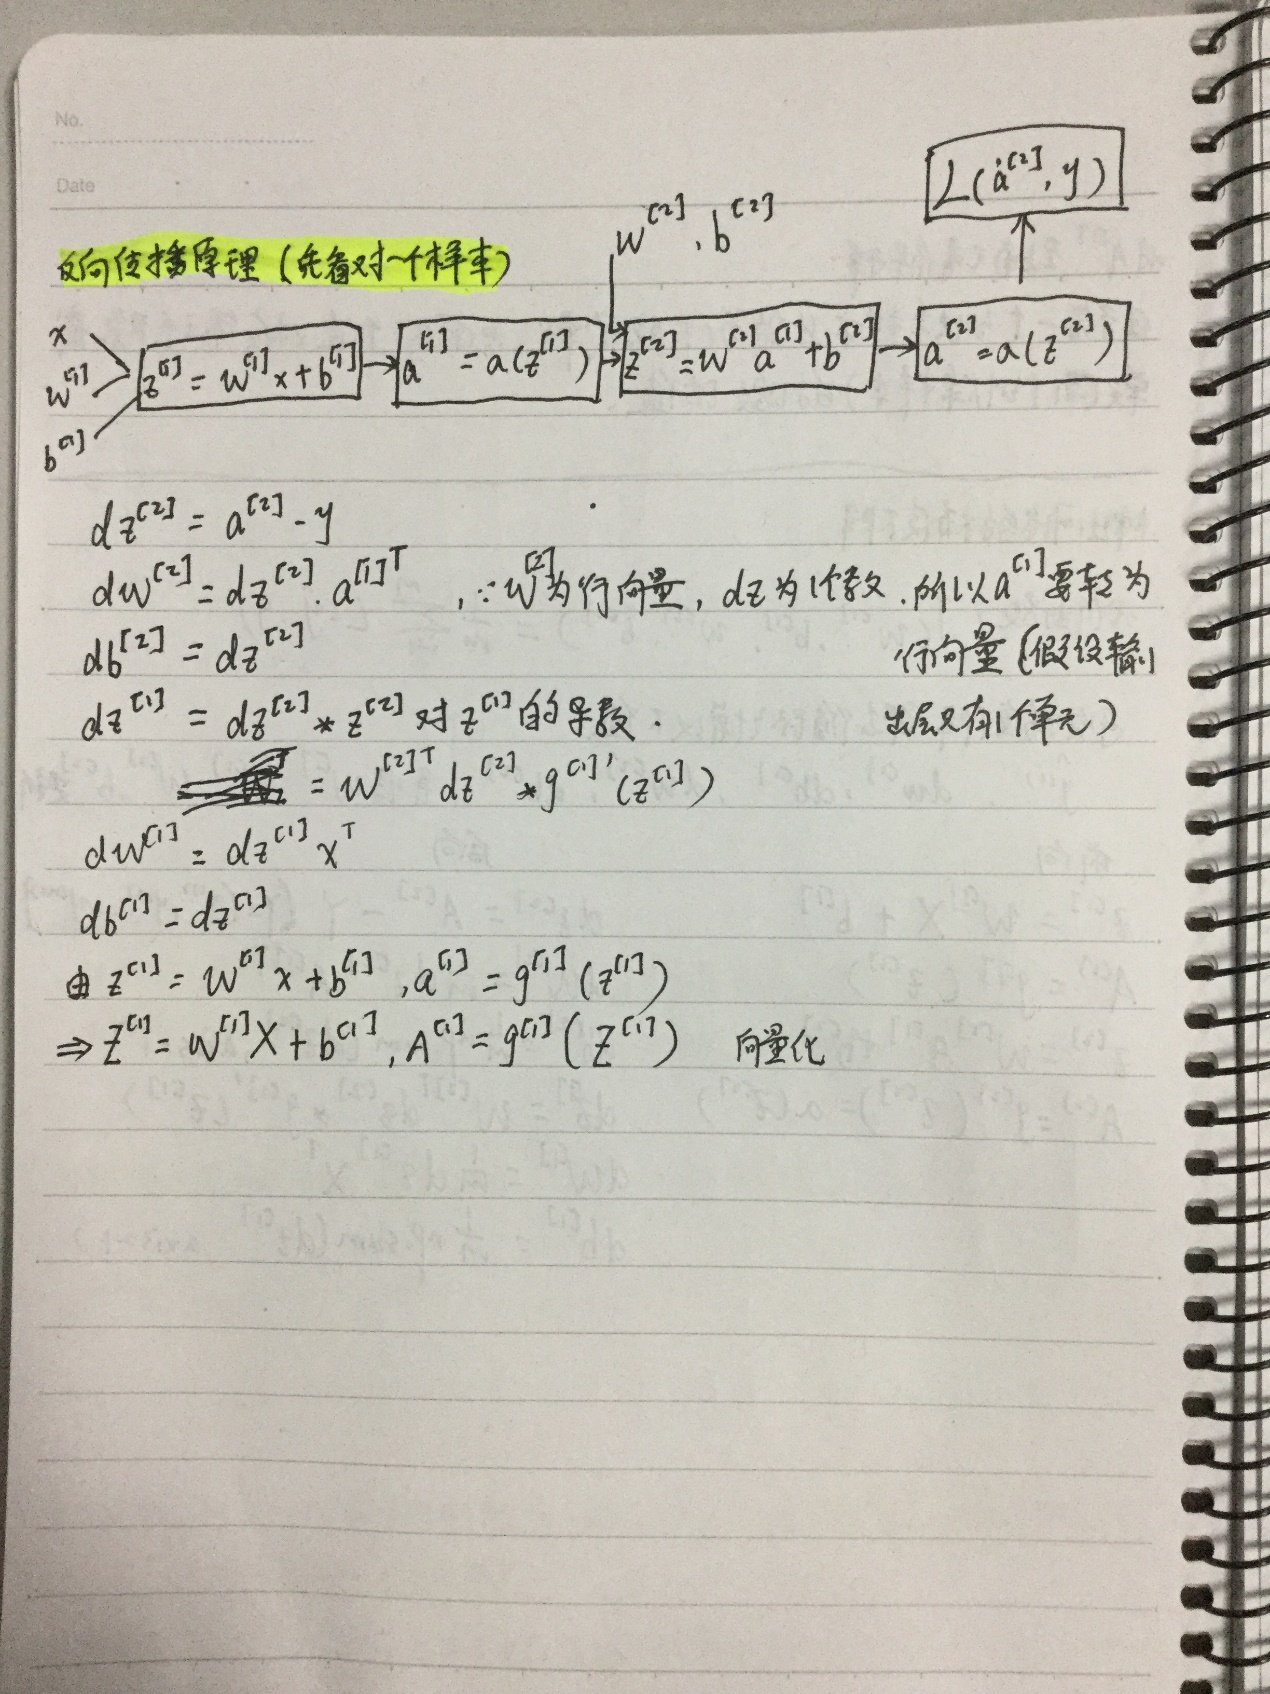 No.
Date
L(a^[2], y)
w^[2], b^[2]
反向传播原理(先看对一个样本)
x
w^[1]
b^[1]
z^[1] = w^[1]x + b^[1] → a^[1] = a(z^[1]) → z^[2] = w^[2]a^[1] + b^[2] → a^[2] = a(z^[2])
dz^[2] = a^[2] - y
dw^[2] = dz^[2] · a^[1]T , ∵ w^[2]为行向量, dz为1个数, 所以a^[1]要转为
行向量(假设输
出层只有1个单元)
db^[2] = dz^[2]
dz^[1] = dz^[2] * z^[2] 对 z^[1] 的导数.
= w^[2]T dz^[2] * g^[1]'(z^[1])
dw^[1] = dz^[1] x^T
db^[1] = dz^[1]
由 z^[1] = w^[1]x + b^[1], a^[1] = g^[1](z^[1])
⇒ Z^[1] = w^[1]X + b^[1], A^[1] = g^[1](Z^[1]) 向量化